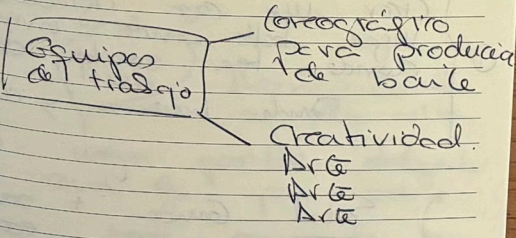 Equipos
de trabajo
Coreográfico
para producir
de baile
Creatividad.
Arte
Arte
Arte